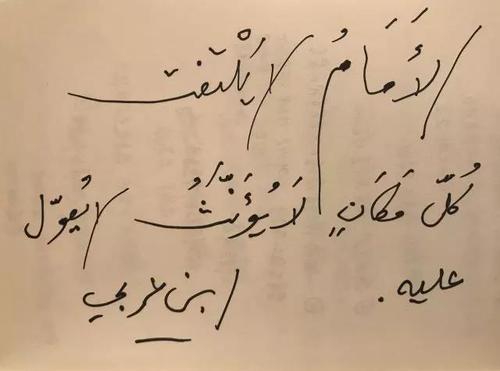 الأَمَامُ لا يَلْتفت
كُلّ مَكَانٍ لَا يُؤَنَّثُ لا يُعوّل
عليه. ابن عربي